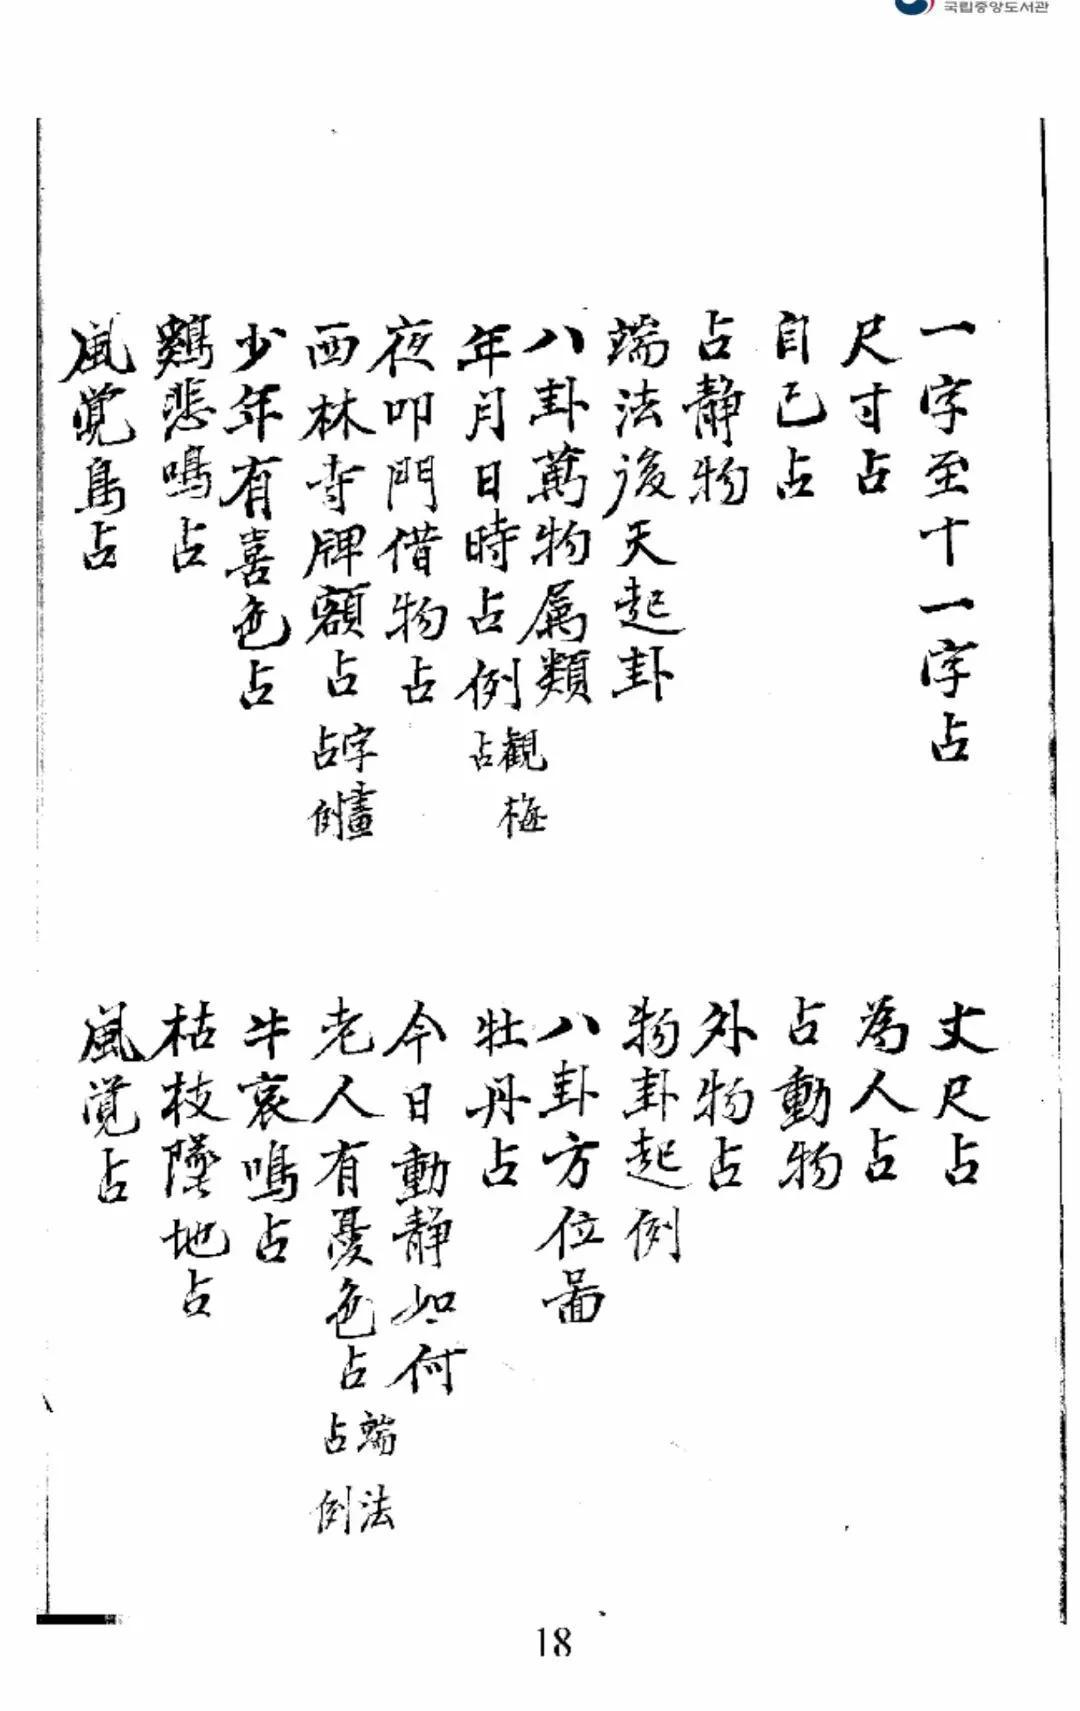 국립중앙도서관
一字至十一字占
丈尺占
尺寸占
為人占
自己占
占動物
占静物
外物占
端法後天起卦
物卦起例
八卦萬物属類
八卦方位啚
年月日時占例 觀梅占
牡丹占
夜叩門借物占
今日動静如何
西林寺牌額占 字畫占例
老人有憂色占 端法占例
少年有喜色占
牛哀鳴占
鷄悲鳴占
枯枝墜地占
風覚鳥占
風覚占
18